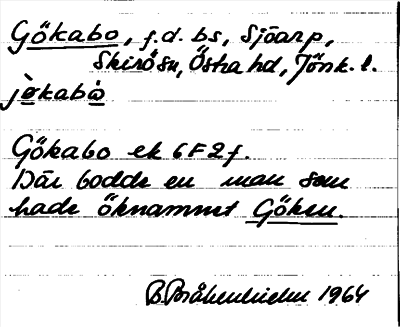 Gökabo, f.d. bs, Sjöarp,
Skirö sn, Östra hd, Jönk. l.
jø̀kabò̱
Gökabo ek 6F2f.
Där bodde en man som
hade öknamnet Göken.
B. Bråkenhielm 1964